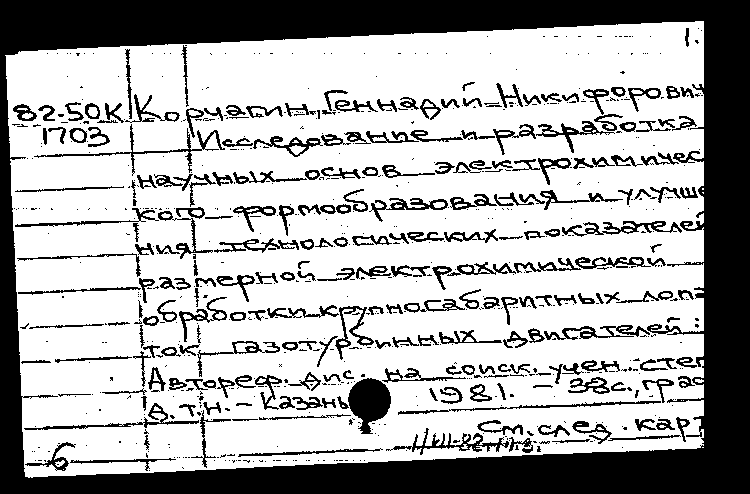 1.
82-50К Корчагин, Геннадий Никифорович
1703 Исследование и разработка
научных основ электрохимичес
кого формообразования и улучше
ния технологических показателей
размерной электрохимической
обработки крупногабаритных лопа
ток газотурбинных двигателей:
Автореф. дис. на соиск. учен. степ
д.т.н. - Казань 1981. - 38с., граф
См. след. карт
6